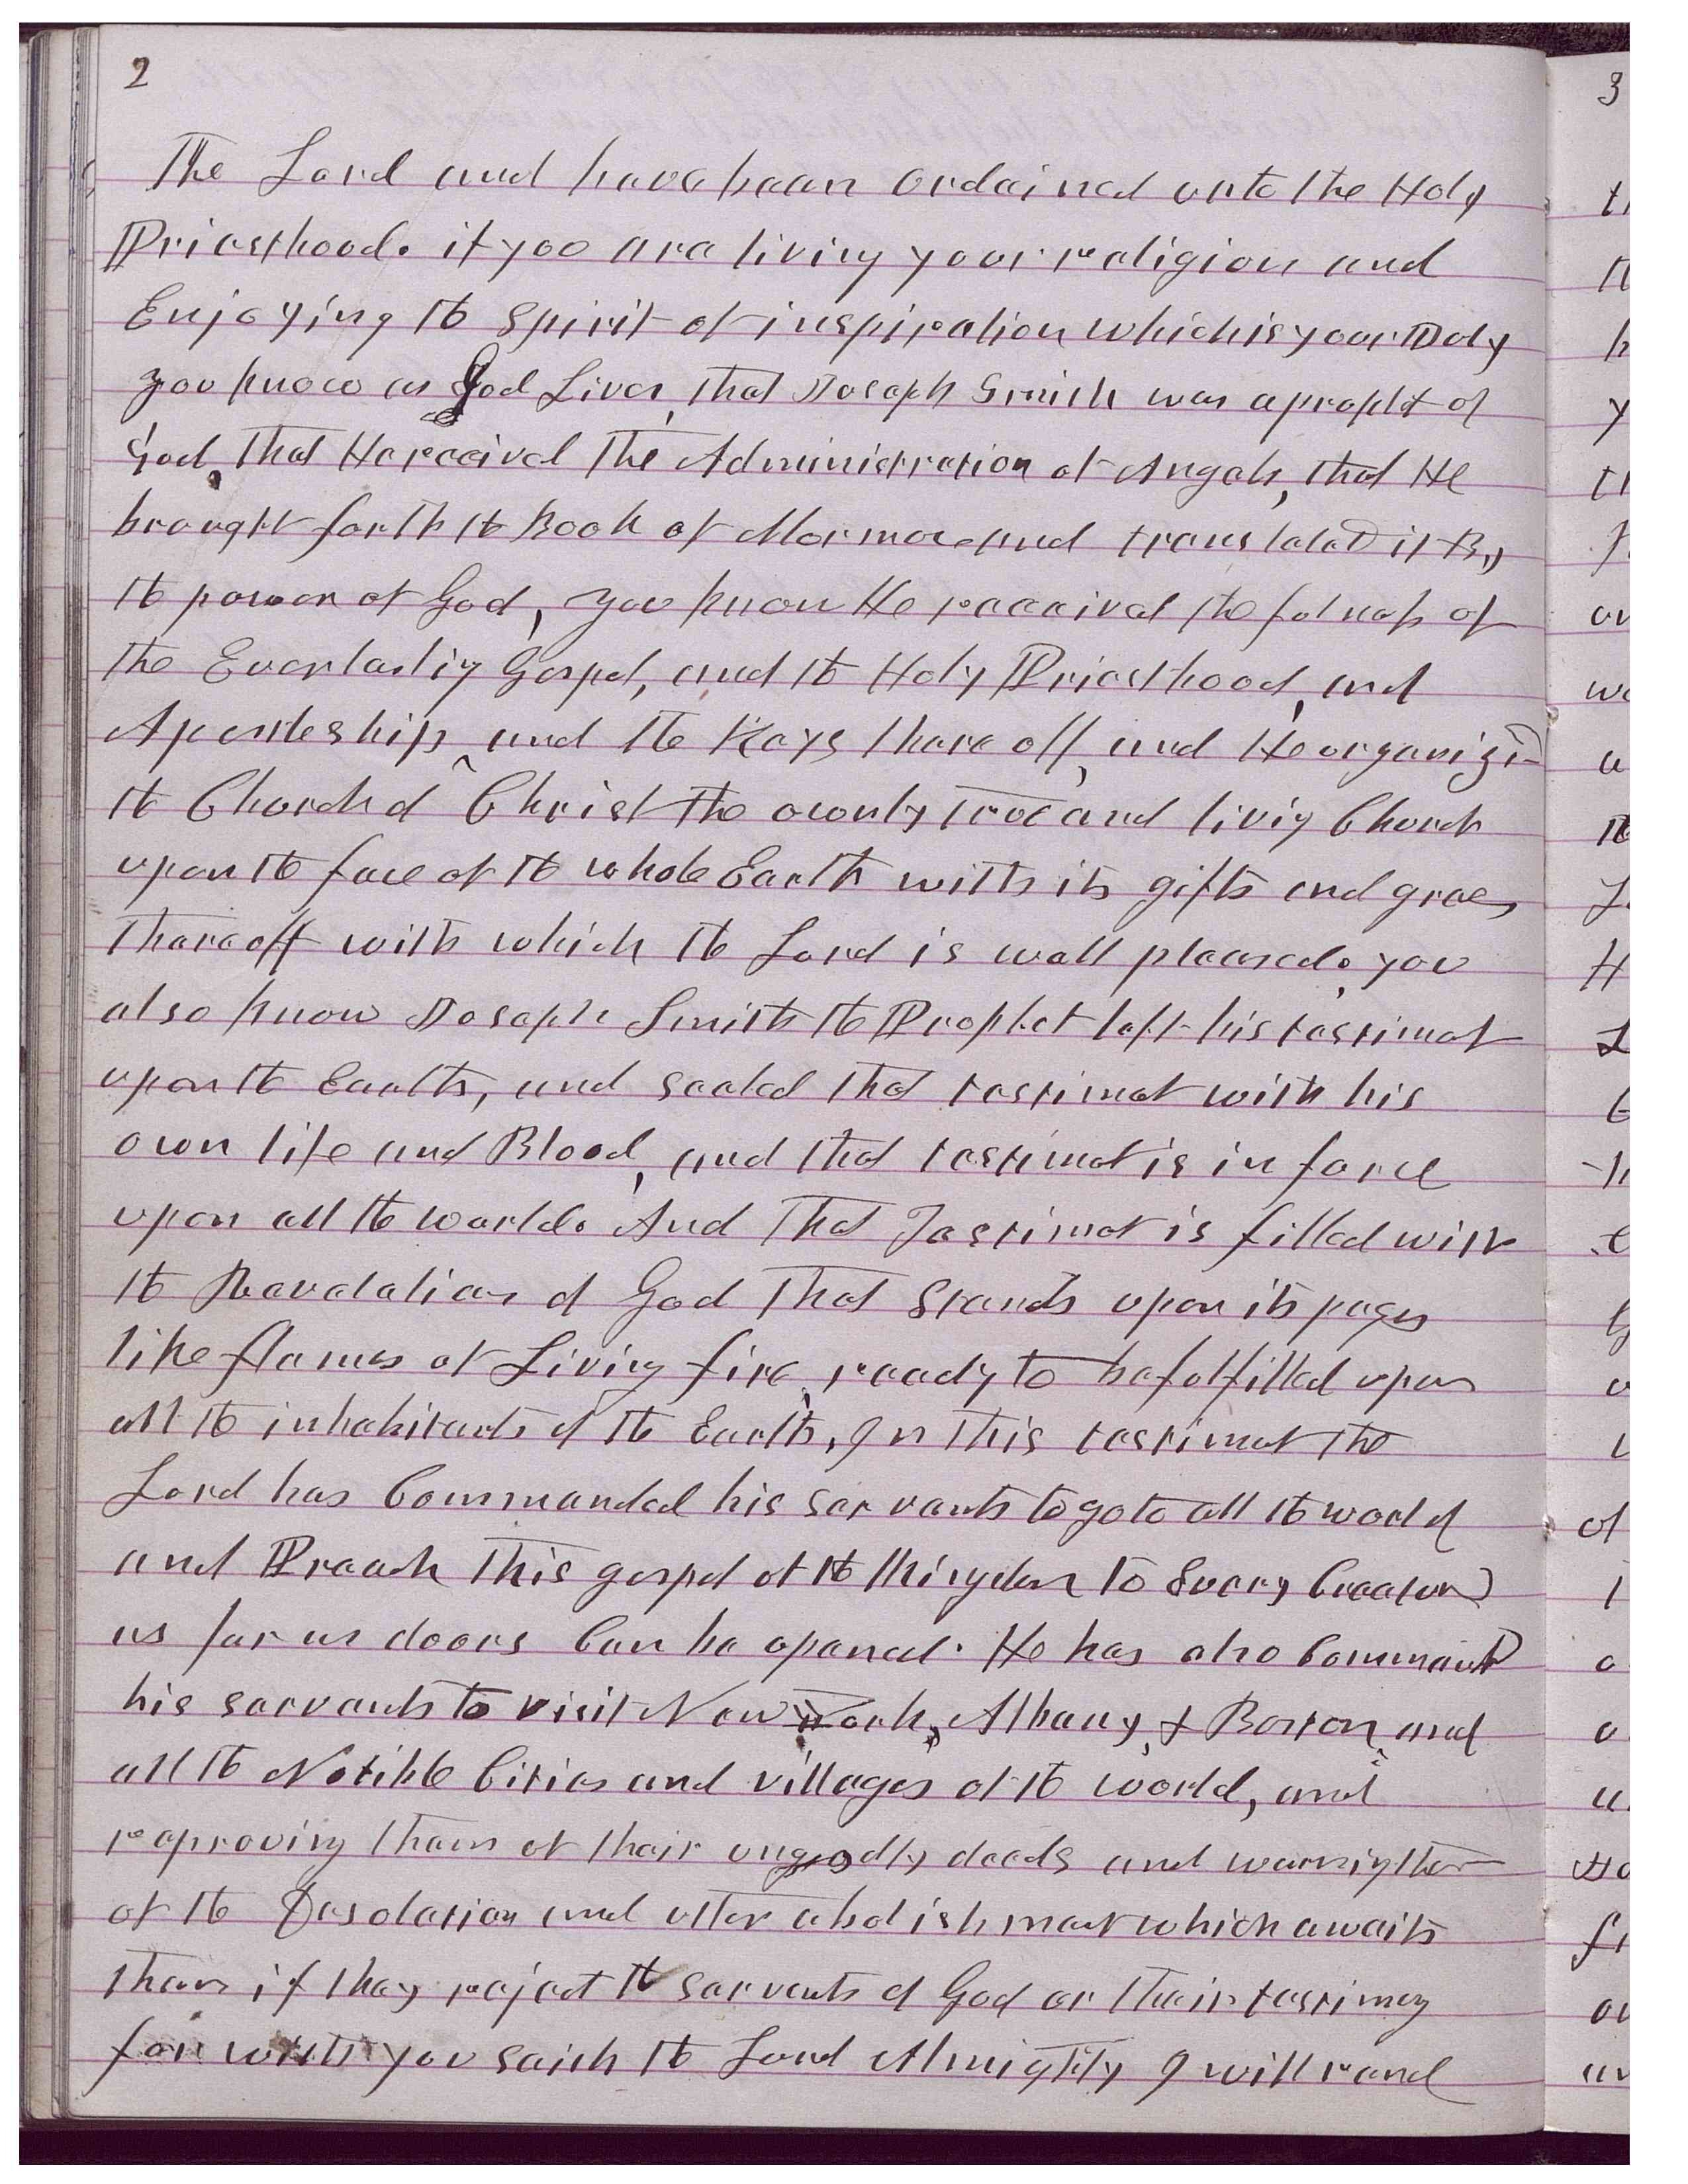 2
The Lord and have been ordained unto the Holy
Priesthood. if you are living your religion and
Enjoying the spirit of inspiration which is your Duty
you know as God Lives, that Joseph Smith was a prophet of
God, that He received the Administration of Angels, that He
brought forth the Book of Mormon and translated it By
the power of God, you know He received the fulness of
the Everlasting Gospel, and the Holy Priesthood, and
Apostleship, and the Keys thereoff, and He organized
the Church of Christ the ownly true and living Church
upon the face of the whole Earth with its gifts and graces
thereoff with which the Lord is well pleased. you
also know Joseph Smith the Prophet left his testimot
upon the Earth, and sealed that testimot with his
own life and Blood, and that testimot is in force
upon all the world. And that Testimot is filled with
the Revelations of God that Stands upon its pages
like flames of Living fire, ready to be fulfilled upon
all the inhabitants of the Earth, In this testimot the
Lord has Commanded his servants to go to all the world
and Preach this gospel of the Kingdom to Every Creature
as far as doors Can be opened. He has also Command
his servants to visit New York, Albany, & Boston, and
all the Notible Cities and villages of the world, and
reproving them of their ungodly deeds and warning them
of the Desolation and utter abolishment which awaits
them if they reject the servants of God or their testimony
for with you saith the Lord Almighty I will rend
3